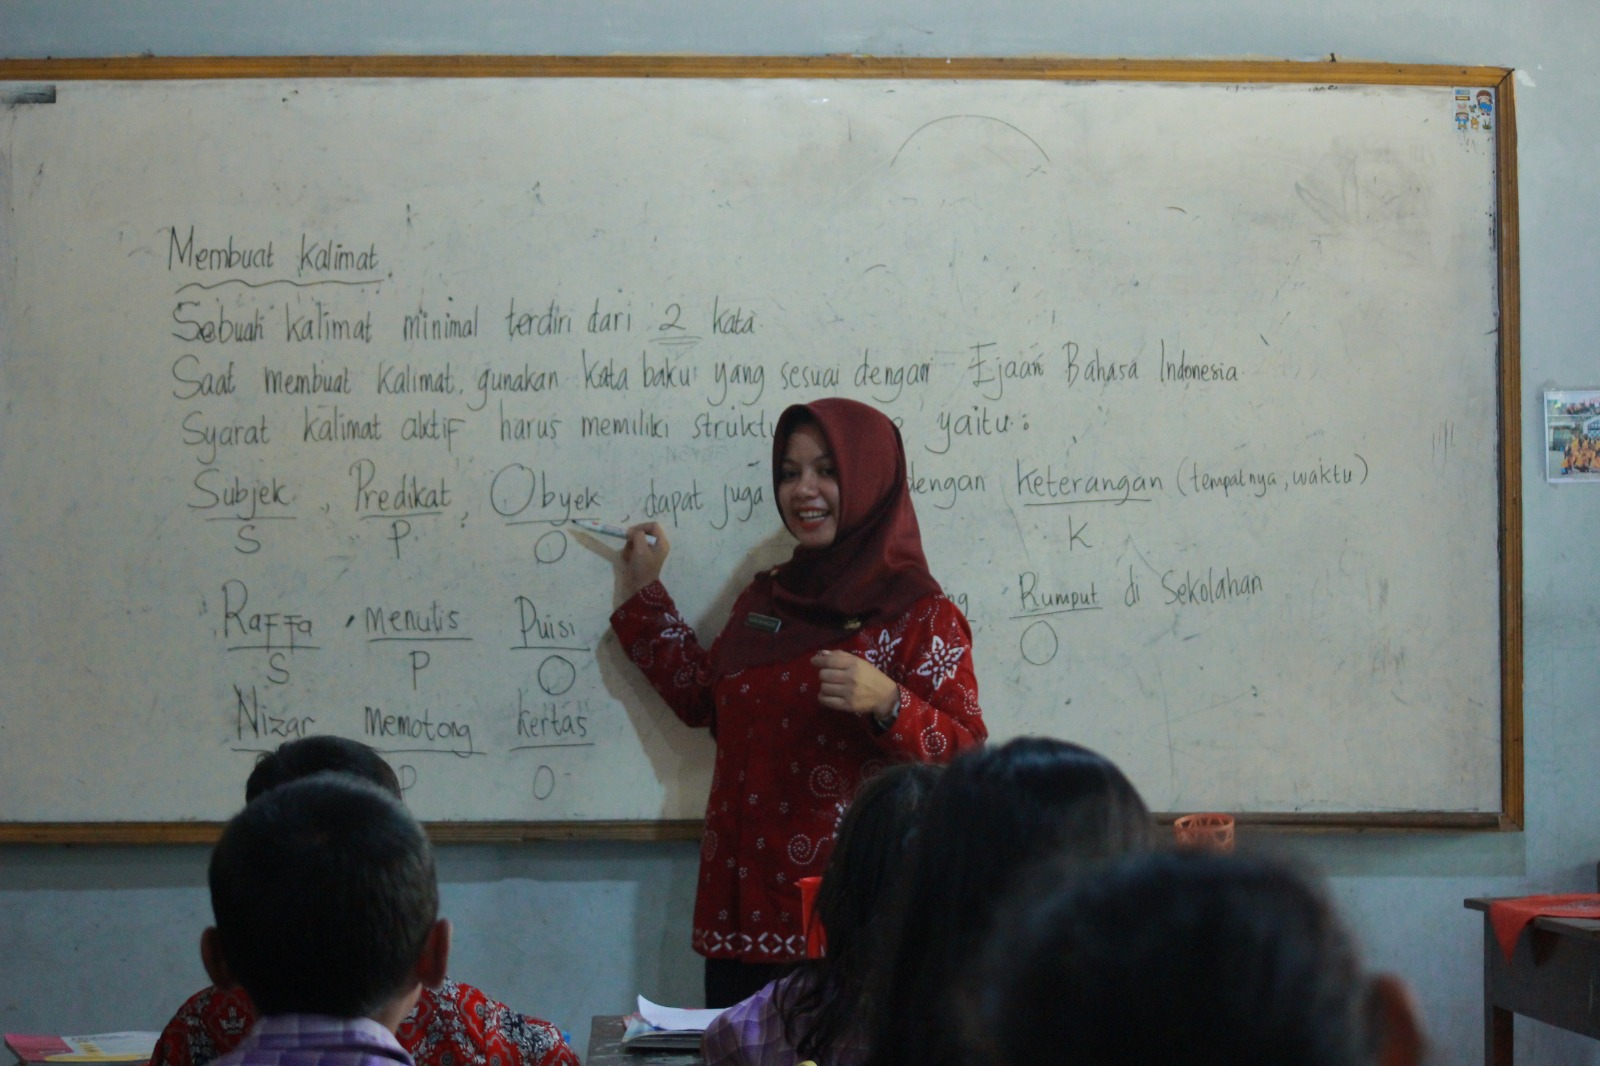 Membuat kalimat
Sebuah kalimat minimal terdiri dari 2 kata.
Saat membuat kalimat, gunakan kata baku yang sesuai dengan Ejaan Bahasa Indonesia.
Syarat kalimat aktif harus memiliki yaitu :
Subjek, Predikat, Obyek, dapat juga dengan keterangan (tempatnya, waktu)
S P O K
Raffa menulis Puisi Rumput di Sekolahan
S P O O
Nizar memotong kertas
P O